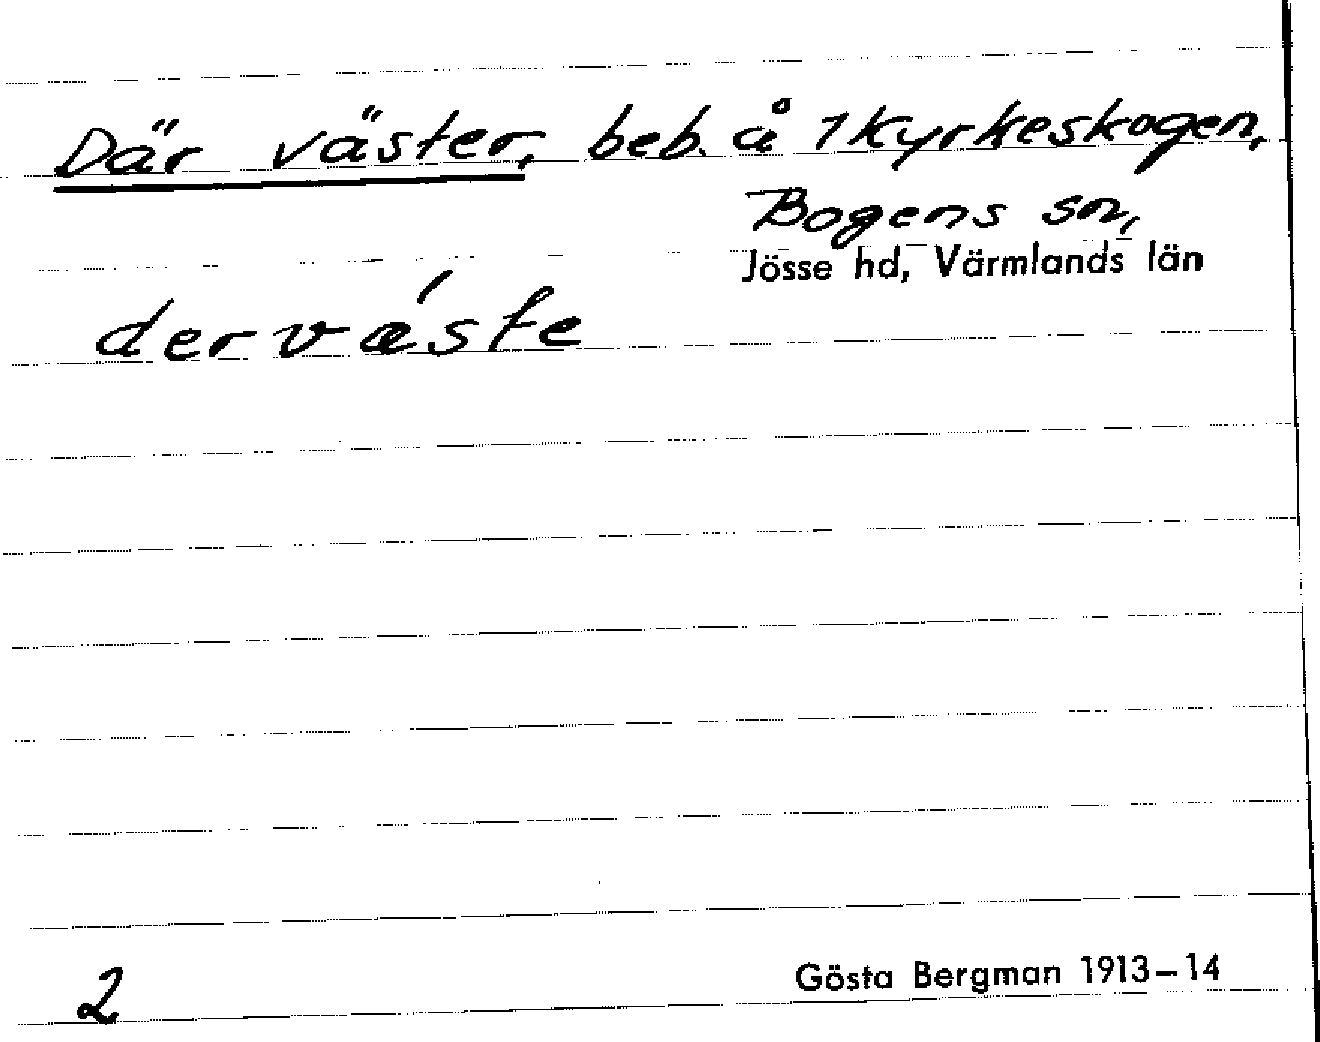 Där väster, beb. å 1 Kyrkeskogen,
Bogens sn,
Jösse hd, Värmlands län
dervæ´ste
2
Gösta Bergman 1913–14